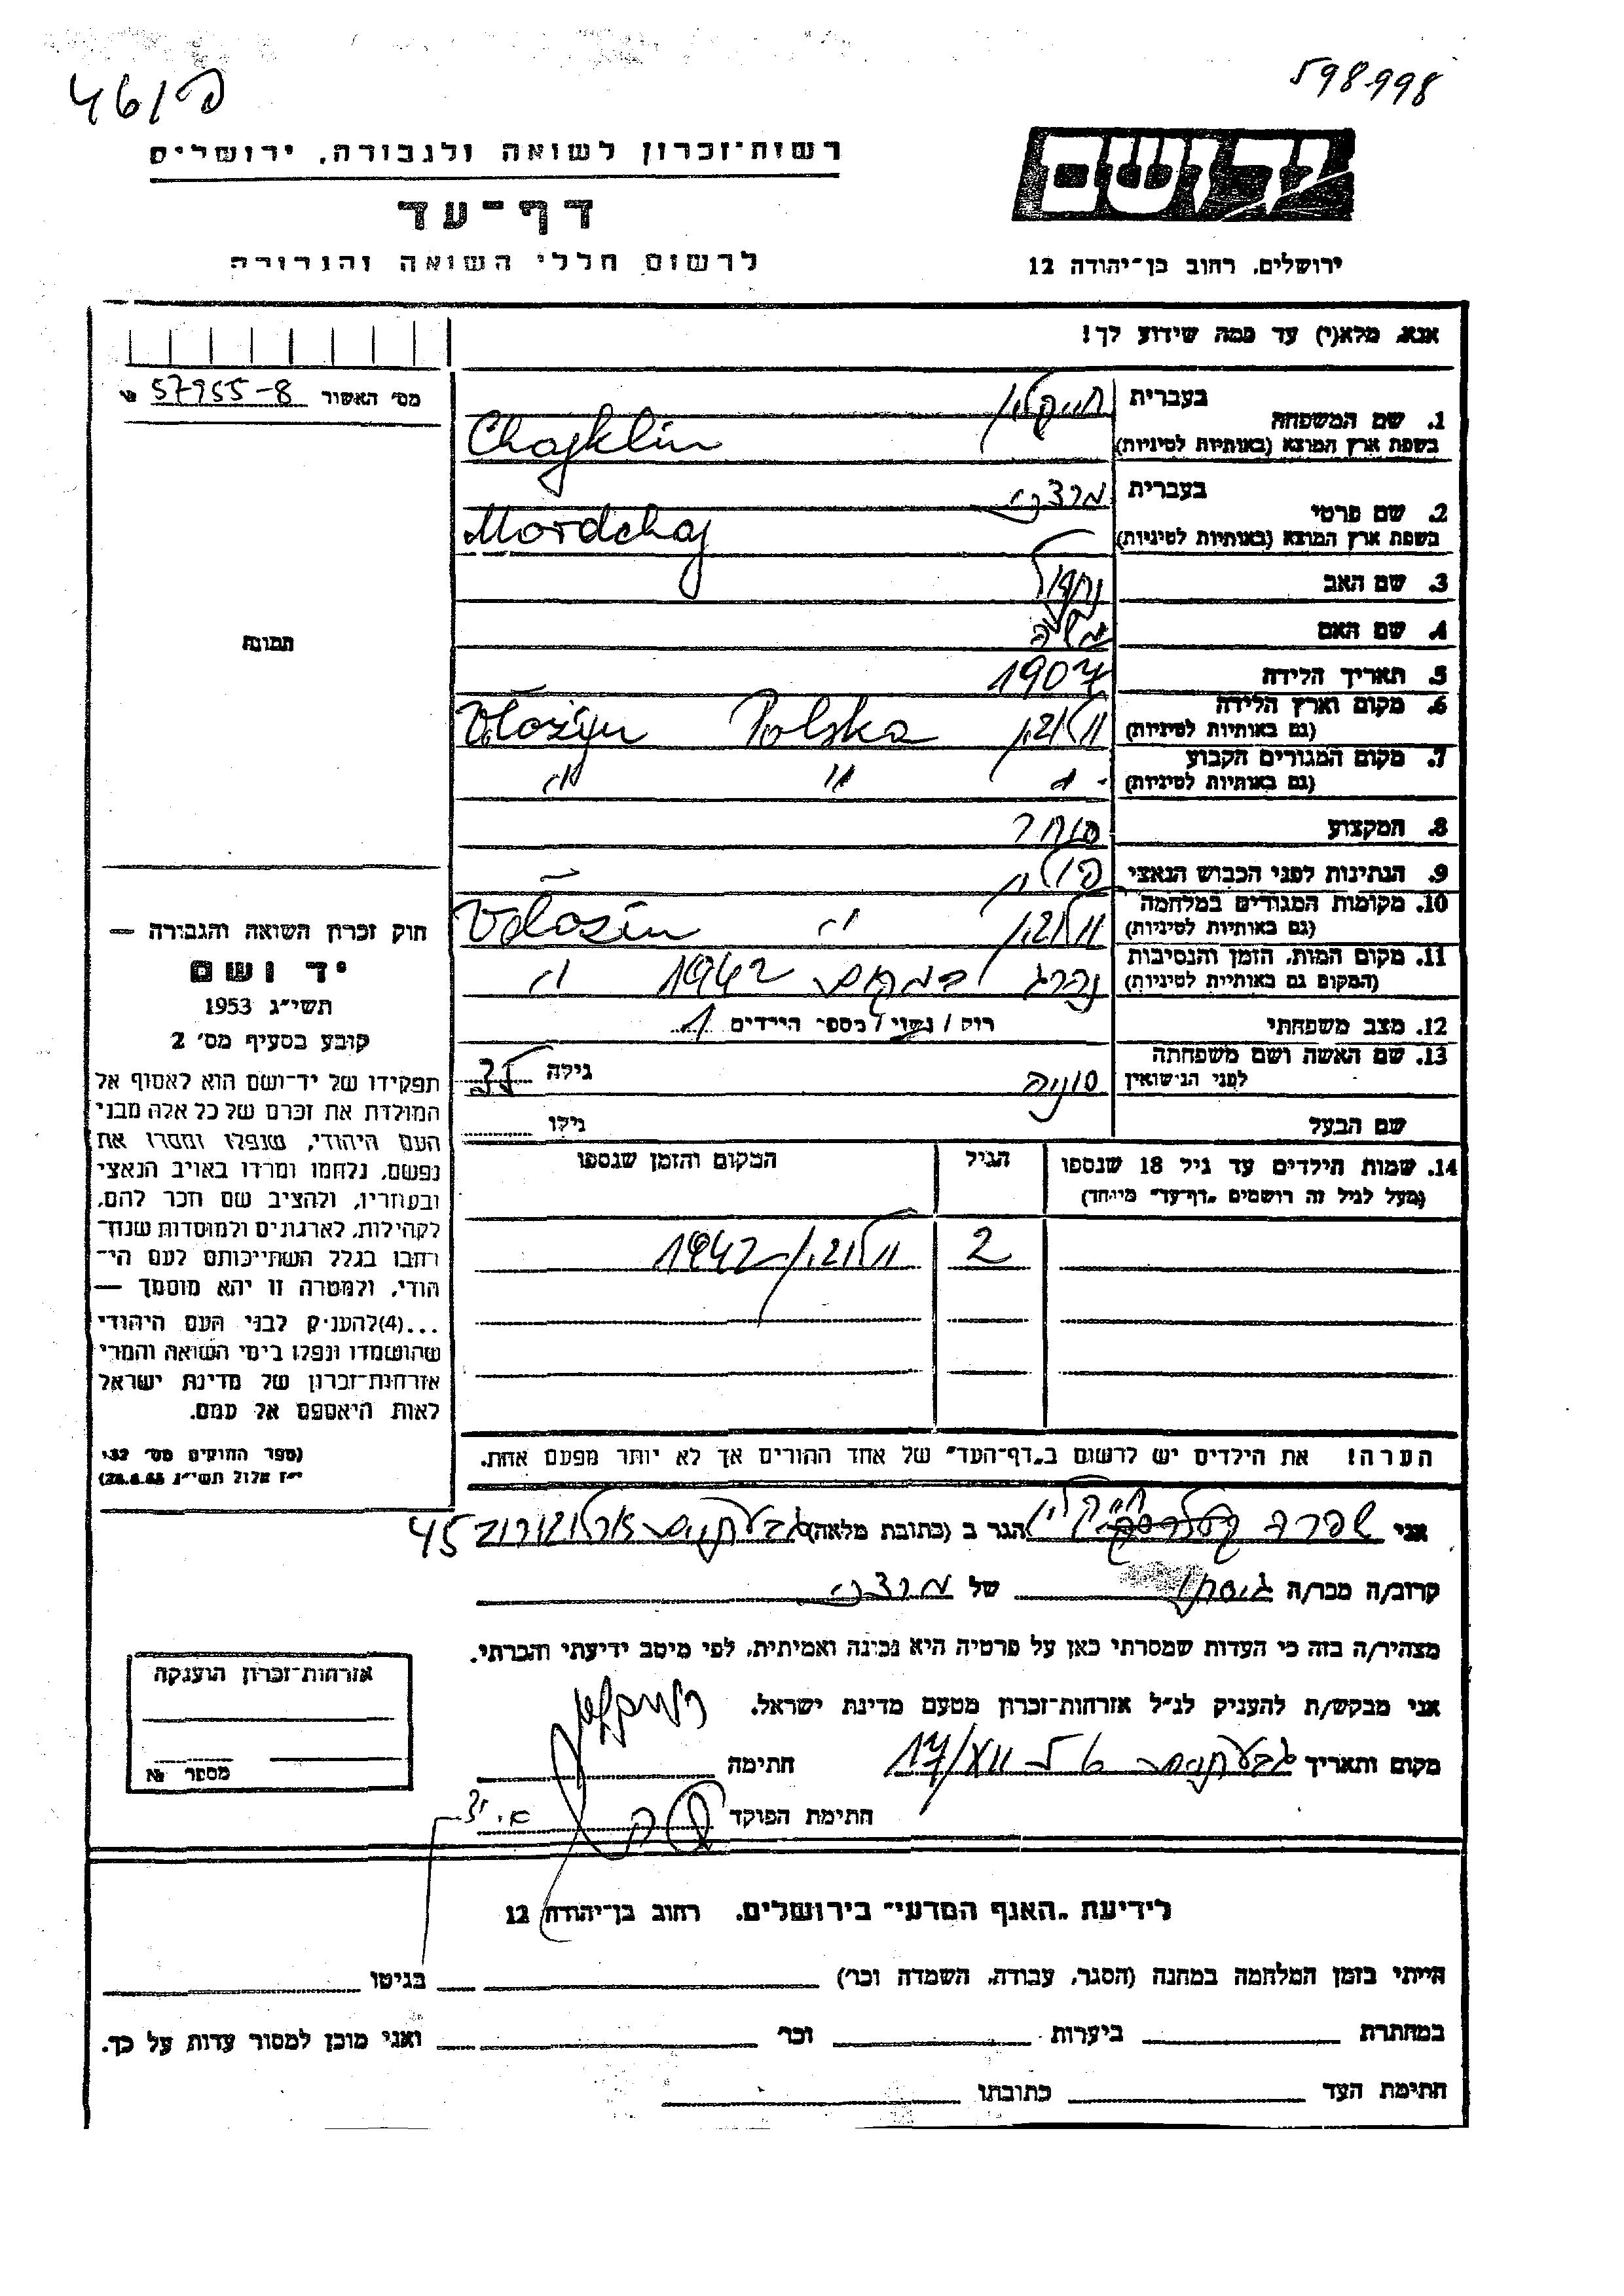 598998
46/פ
יד ושם
ירושלים, רחוב בן־יהודה 12
רשות־זכרון לשואה ולגבורה, ירושלים
דף־עד
לרשום חללי השואה והגבורה
אנא, מלא(י) עד כמה שידוע לך!
מס׳ האשור 57955-8 №
תמונה
חוק זכרון השואה והגבורה —
יד ושם
תשי״ג 1953
קובע בסעיף מס׳ 2
תפקידו של יד־ושם הוא לאסוף אל
המולדת את זכרם של כל אלה מבני
העם היהודי, שנפלו ומסרו את
נפשם, נלחמו ומרדו באויב הנאצי
ובעוזריו, ולהציב שם וזכר להם,
לקהילות, לארגונים ולמוסדות שנח־
רחבו בגלל השתייכותם לעם הי־
הודי, ולמטרה זו יהא מוסמך —
...(4) להעניק לבני העם היהודי
שהושמדו ונפלו בימי השואה והמרי
אזרחות־זכרון של מדינת ישראל
לאות היאספם אל עמם.
(ספר החוקים מס׳ 132,
י״ז אלול תשי״ג 28.8.53)
1. שם המשפחה בעברית חייקלין
בשפת ארץ המוצא (באותיות לטיניות) Chajklin
2. שם פרטי בעברית מרדכי
בשפת ארץ המוצא (באותיות לטיניות) Mordchaj
3. שם האב
4. שם האם
5. תאריך הלידה 1907
6. מקום וארץ הלידה וולוז׳ין Polska Wołożyn
(גם באותיות לטיניות)
7. מקום המגורים הקבוע " " "
(גם באותיות לטיניות)
8. המקצוע סוחר
9. הנתינות לפני הכבוש הנאצי פולין
10. מקומות המגורים במלחמה וולוזין " Vołożin
(גם באותיות לטיניות)
11. מקום המות, הזמן והנסיבות נהרג במקום 1942 "
(המקום גם באותיות לטיניות)
12. מצב משפחתי רוק / נשוי / מספר הילדים 1
13. שם האשה ושם משפחתה סוניה גילה
לפני הנישואין
שם הבעל גילו
14. שמות הילדים עד גיל 18 שנספו הגיל המקום והזמן שנספו
(מעל לגיל זה רושמים „דף־עד״ מיוחד)
2 וולוזין 1942
הערה! את הילדים יש לרשום ב„דף־העד״ של אחד ההורים אך לא יותר מפעם אחת.
אני שפרה חייקלין הגר ב (כתובת מלאה) גבעתיים ארלוזורוב 45
קרוב/ה מכר/ה גיסתו של מרדכי
מצהיר/ה בזה כי העדות שמסרתי כאן על פרטיה היא נכונה ואמיתית, לפי מיטב ידיעתי והכרתי.
אני מבקש/ת להעניק לנ״ל אזרחות־זכרון מטעם מדינת ישראל.
מקום ותאריך גבעתיים 17/XII חתימה
חתימת הפוקד
אזרחות־זכרון הוענקה
מספר №
לידיעת „האגף המדעי״ בירושלים, רחוב בן־יהודה 12
הייתי בזמן המלחמה במחנה (הסגר, עבודה, השמדה וכו׳) בגיטו
במחתרת ביערות וכו׳ ואני מוכן למסור עדות על כך.
חתימת העד כתובתו